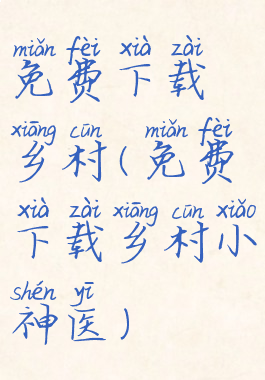 miǎn fèi xià zài
免费下载
xiāng cūn miǎn fèi
乡村(免费
xià zài xiāng cūn xiǎo
下载乡村小
shén yī
神医)